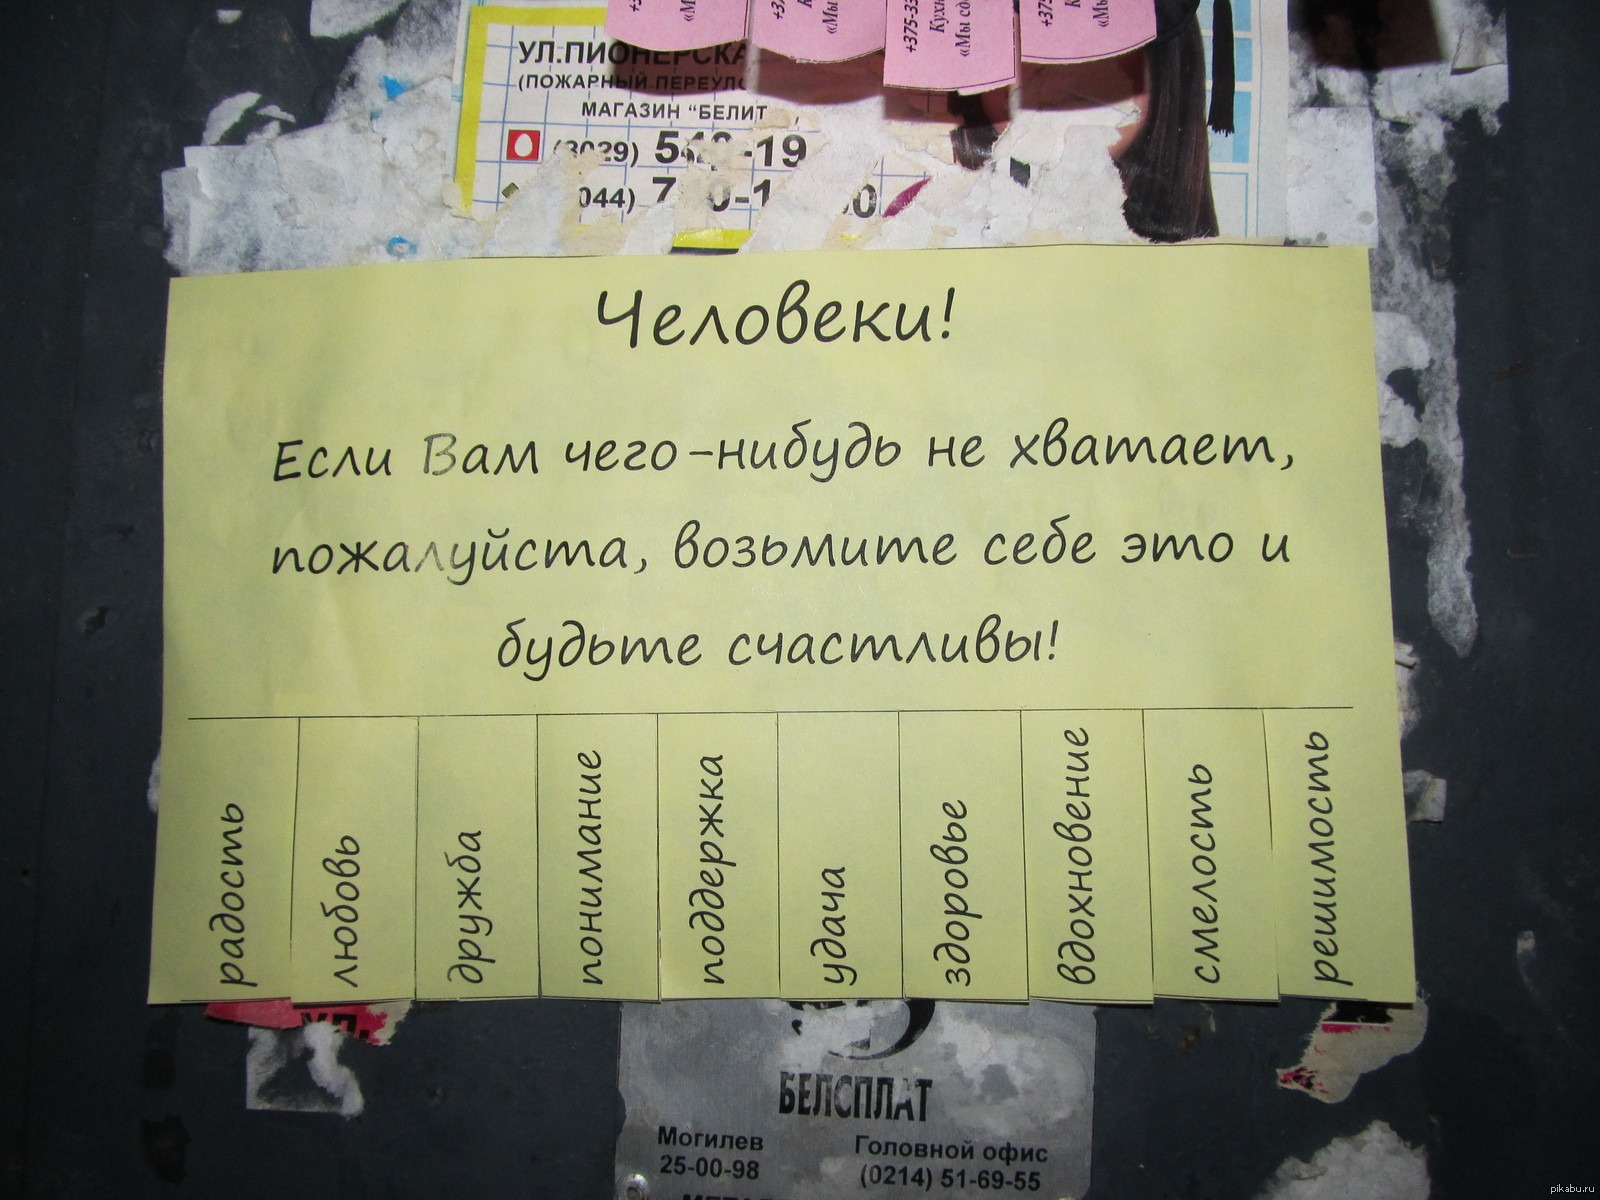 УЛ.ПИОНЕРСКА
(ПОЖАРНЫЙ ПЕРЕУЛ
МАГАЗИН "БЕЛИТ
-19
Человеки!
Если Вам чего-нибудь не хватает,
пожалуйста, возьмите себе это и
будьте счастливы!
радость
любовь
дружба
понимание
поддержка
удача
здоровье
вдохновение
смелость
решимость
УЛ.
БЕЛСПЛАТ
Могилев
25-00-98
Головной офис
(0214) 51-69-55
pikabu.ru